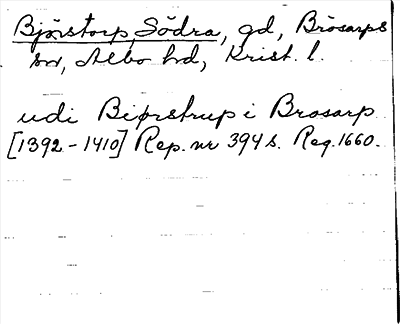 Björstorp, Södra, gd, Brösarps
sn, Albo hd, Krist. l.
udi Biørstrup i Brosarp
[1392-1410] Rep. nr 394 s. Reg. 1660.